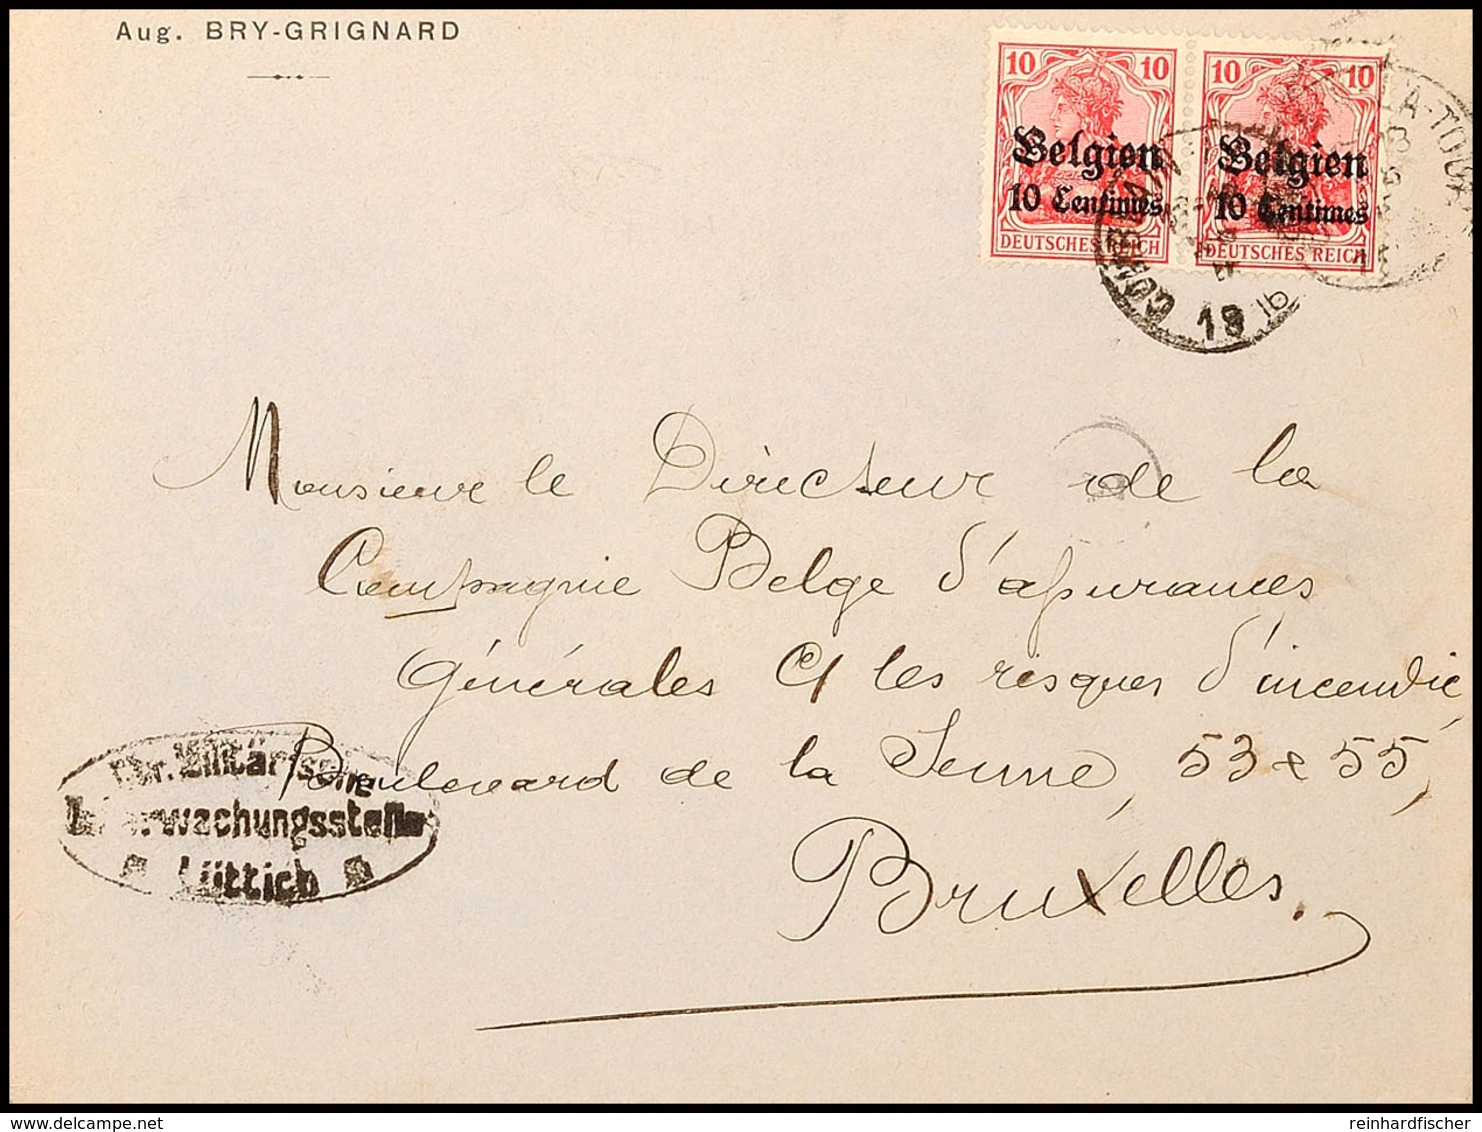 Aug. BRY-GRIGNARD
10 10 10 10
Belgien Belgien
10 Centimes 10 Centimes
DEUTSCHES REICH DEUTSCHES REICH
LA-TOUR
19 16
Monsieur le Directeur de la
Compagnie Belge d'assurances
Générales Ct les risques d'incendie,
Boulevard de la Senne, 53 & 55,
Bruxelles.
Militärische
Überwachungsstelle
Lüttich
delcampe.net
reinhardfischer